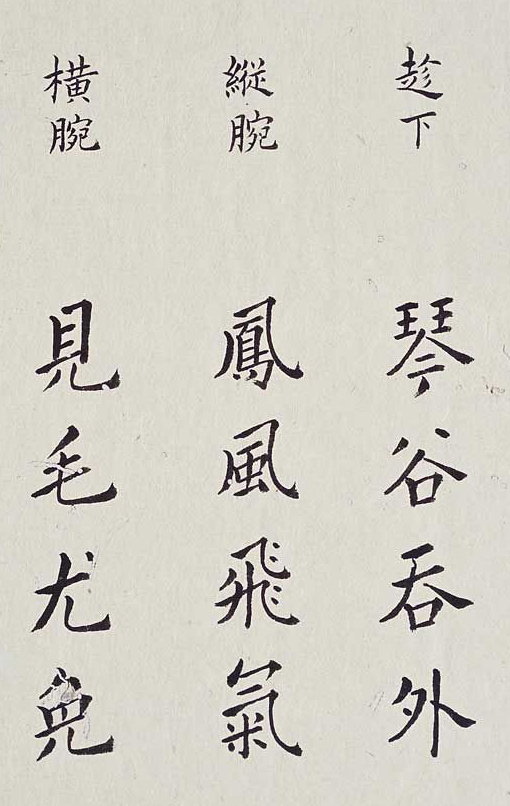 趁下
琴谷吞外
縱腕
鳳風飛氣
橫腕
見毛尤免